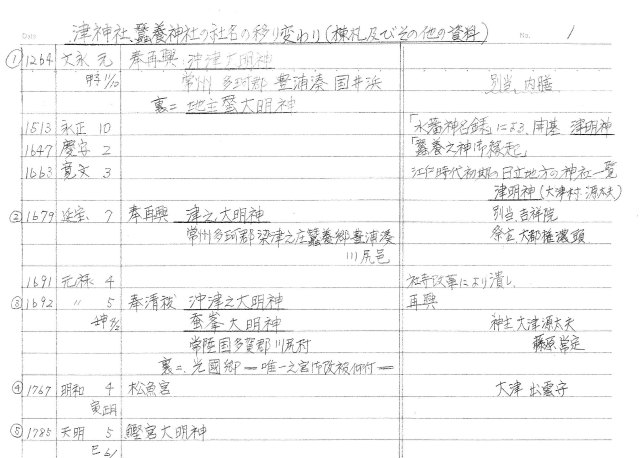 Date
津神社、蠶養神社の社名の移り変わり(棟札及びその他の資料)
No. 1
① 1264 文永 元 奉再興 沖津大明神
甲子 11/10 常州 多珂郡 豊浦湊 国井浜 別当 内膳
裏ニ 地主蚕大明神
1513 永正 10 「水藩神名録」による 開基 津明神
1647 慶安 2 「蠶養之神御縁起」
1663 寛文 3 江戸時代初期の日立地方の神社一覧
津明神(大津村 源太夫)
② 1679 延宝 7 奉再興 津之大明神 別当 吉祥院
常州多珂郡梁津之庄蠶養郷豊浦湊 祭主 大都権濃頭
川尻邑
1691 元禄 4 社寺改革により潰し
③ 1692 〃 5 奉清祓 沖津之大明神 再興
蚕峯大明神 神主 大津源太夫
常陸国多賀郡川尻村 藤原常定
裏ニ 光國郷 唯一之宮
④ 1767 明和 4 松魚宮 大津 出雲守
寅正月
⑤ 1785 天明 5 鰹宮大明神
巳 6/